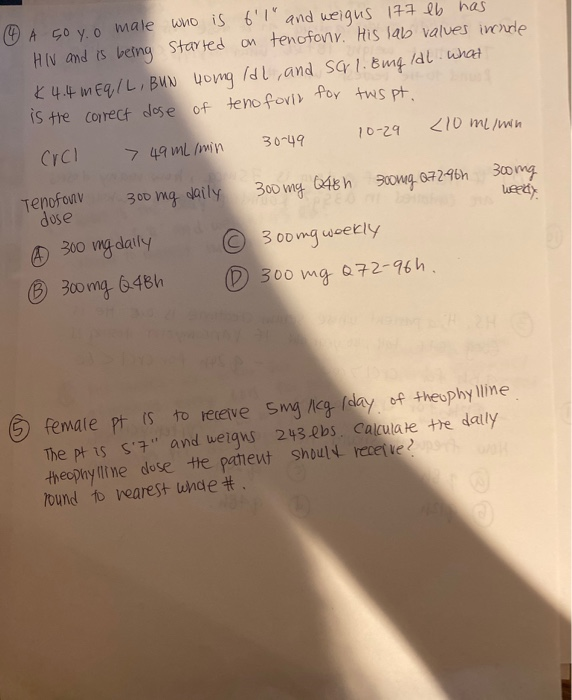 ④ A 50 y.o male who is 6'1" and weighs 177 lb has
HIV and is being started on tenofovir. His lab values include
K 4.4 mEq/L, BUN 40mg/dL, and SCr 1.8mg/dL. What
is the correct dose of tenofovir for this pt.
CrCl > 49 mL/min 30-49 10-29 <10 mL/min
Tenofovir dose 300 mg daily 300 mg Q48h 300mg Q72-96h 300mg weekly.
Ⓐ 300 mg daily Ⓒ 300mg weekly
Ⓑ 300mg Q48h Ⓓ 300 mg Q72-96h.
⑤ female pt is to receive 5mg/kg/day of theophylline.
The pt is 5'7" and weighs 243 lbs. Calculate the daily
theophylline dose the patient should receive?
round to nearest whole #.